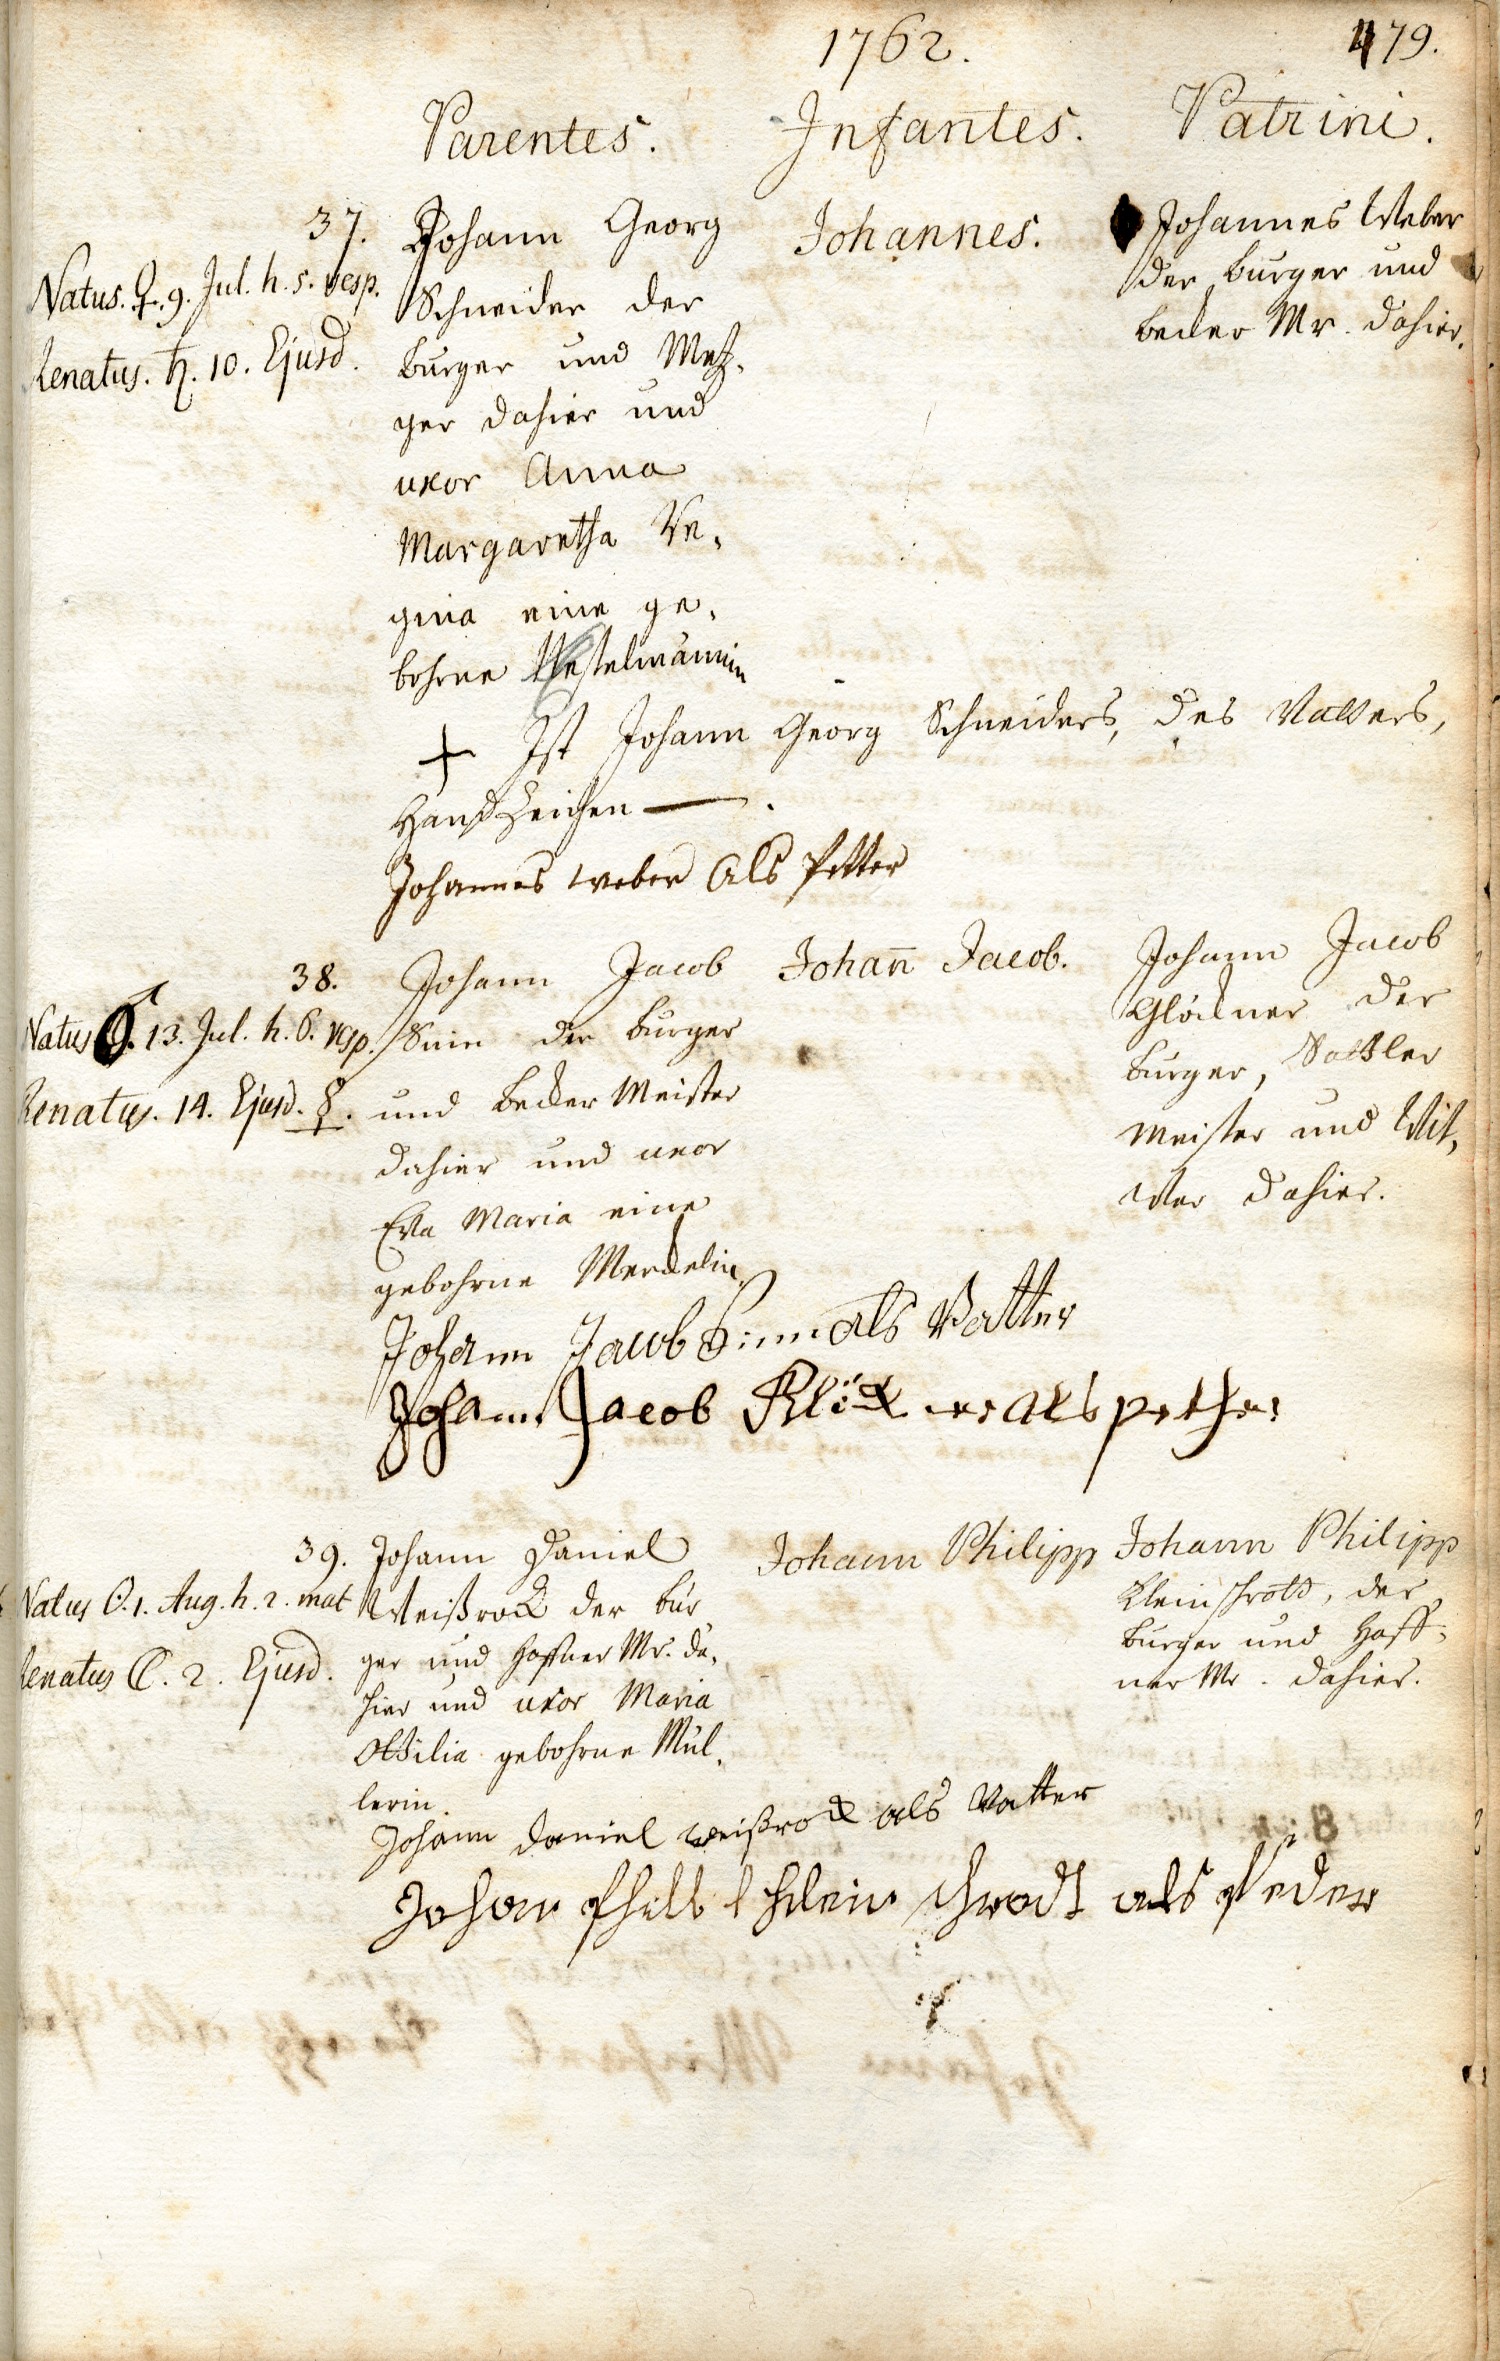 1762.
479.
Parentes. Infantes. Patrini.
37.
Natus. ♀. 9. Jul. h. 5. vesp.
Renatus. ♄. 10. Ejusd.
Johann Georg
Schneider der
burger und Metz-
ger dahier und
uxor Anna
Margaretha Re-
gina eine ge-
bohrne Westelmännin
Johannes.
Johannes Weber
der burger und
becker Mr. dahier.
+ Ist Johann Georg Schneiders, des Vatters,
Handzeichen — .
Johannes weber als Petter
38.
Natus ♂. 13. Jul. h. 6. vesp.
Renatus. 14. Ejusd. ☿.
Johann Jacob
Sinn der burger
und becker Meister
dahier und uxor
Eva Maria eine
gebohrne Merckelin.
Johan̄ Jacob.
Johann Jacob
Glöckner der
burger, Sattler
meister und Wit-
wer dahier.
Johann Jacob Sinn als Vatter
Johann Jacob Klöckner als pether
39.
Natus ☉. 1. Aug. h. 2. mat
Renatus ☾. 2. Ejusd.
Johann Daniel
Weißrock der bür-
ger und Haffner Mr. da-
hier und uxor Maria
Ottilia gebohrne Mül-
lerin.
Johann Philipp
Johann Philipp
Kleinschrodt, der
burger und Haff-
ner Mr. dahier.
Johann daniel weißrock als Vatter
Johan Phillb klein schrodt als Peder